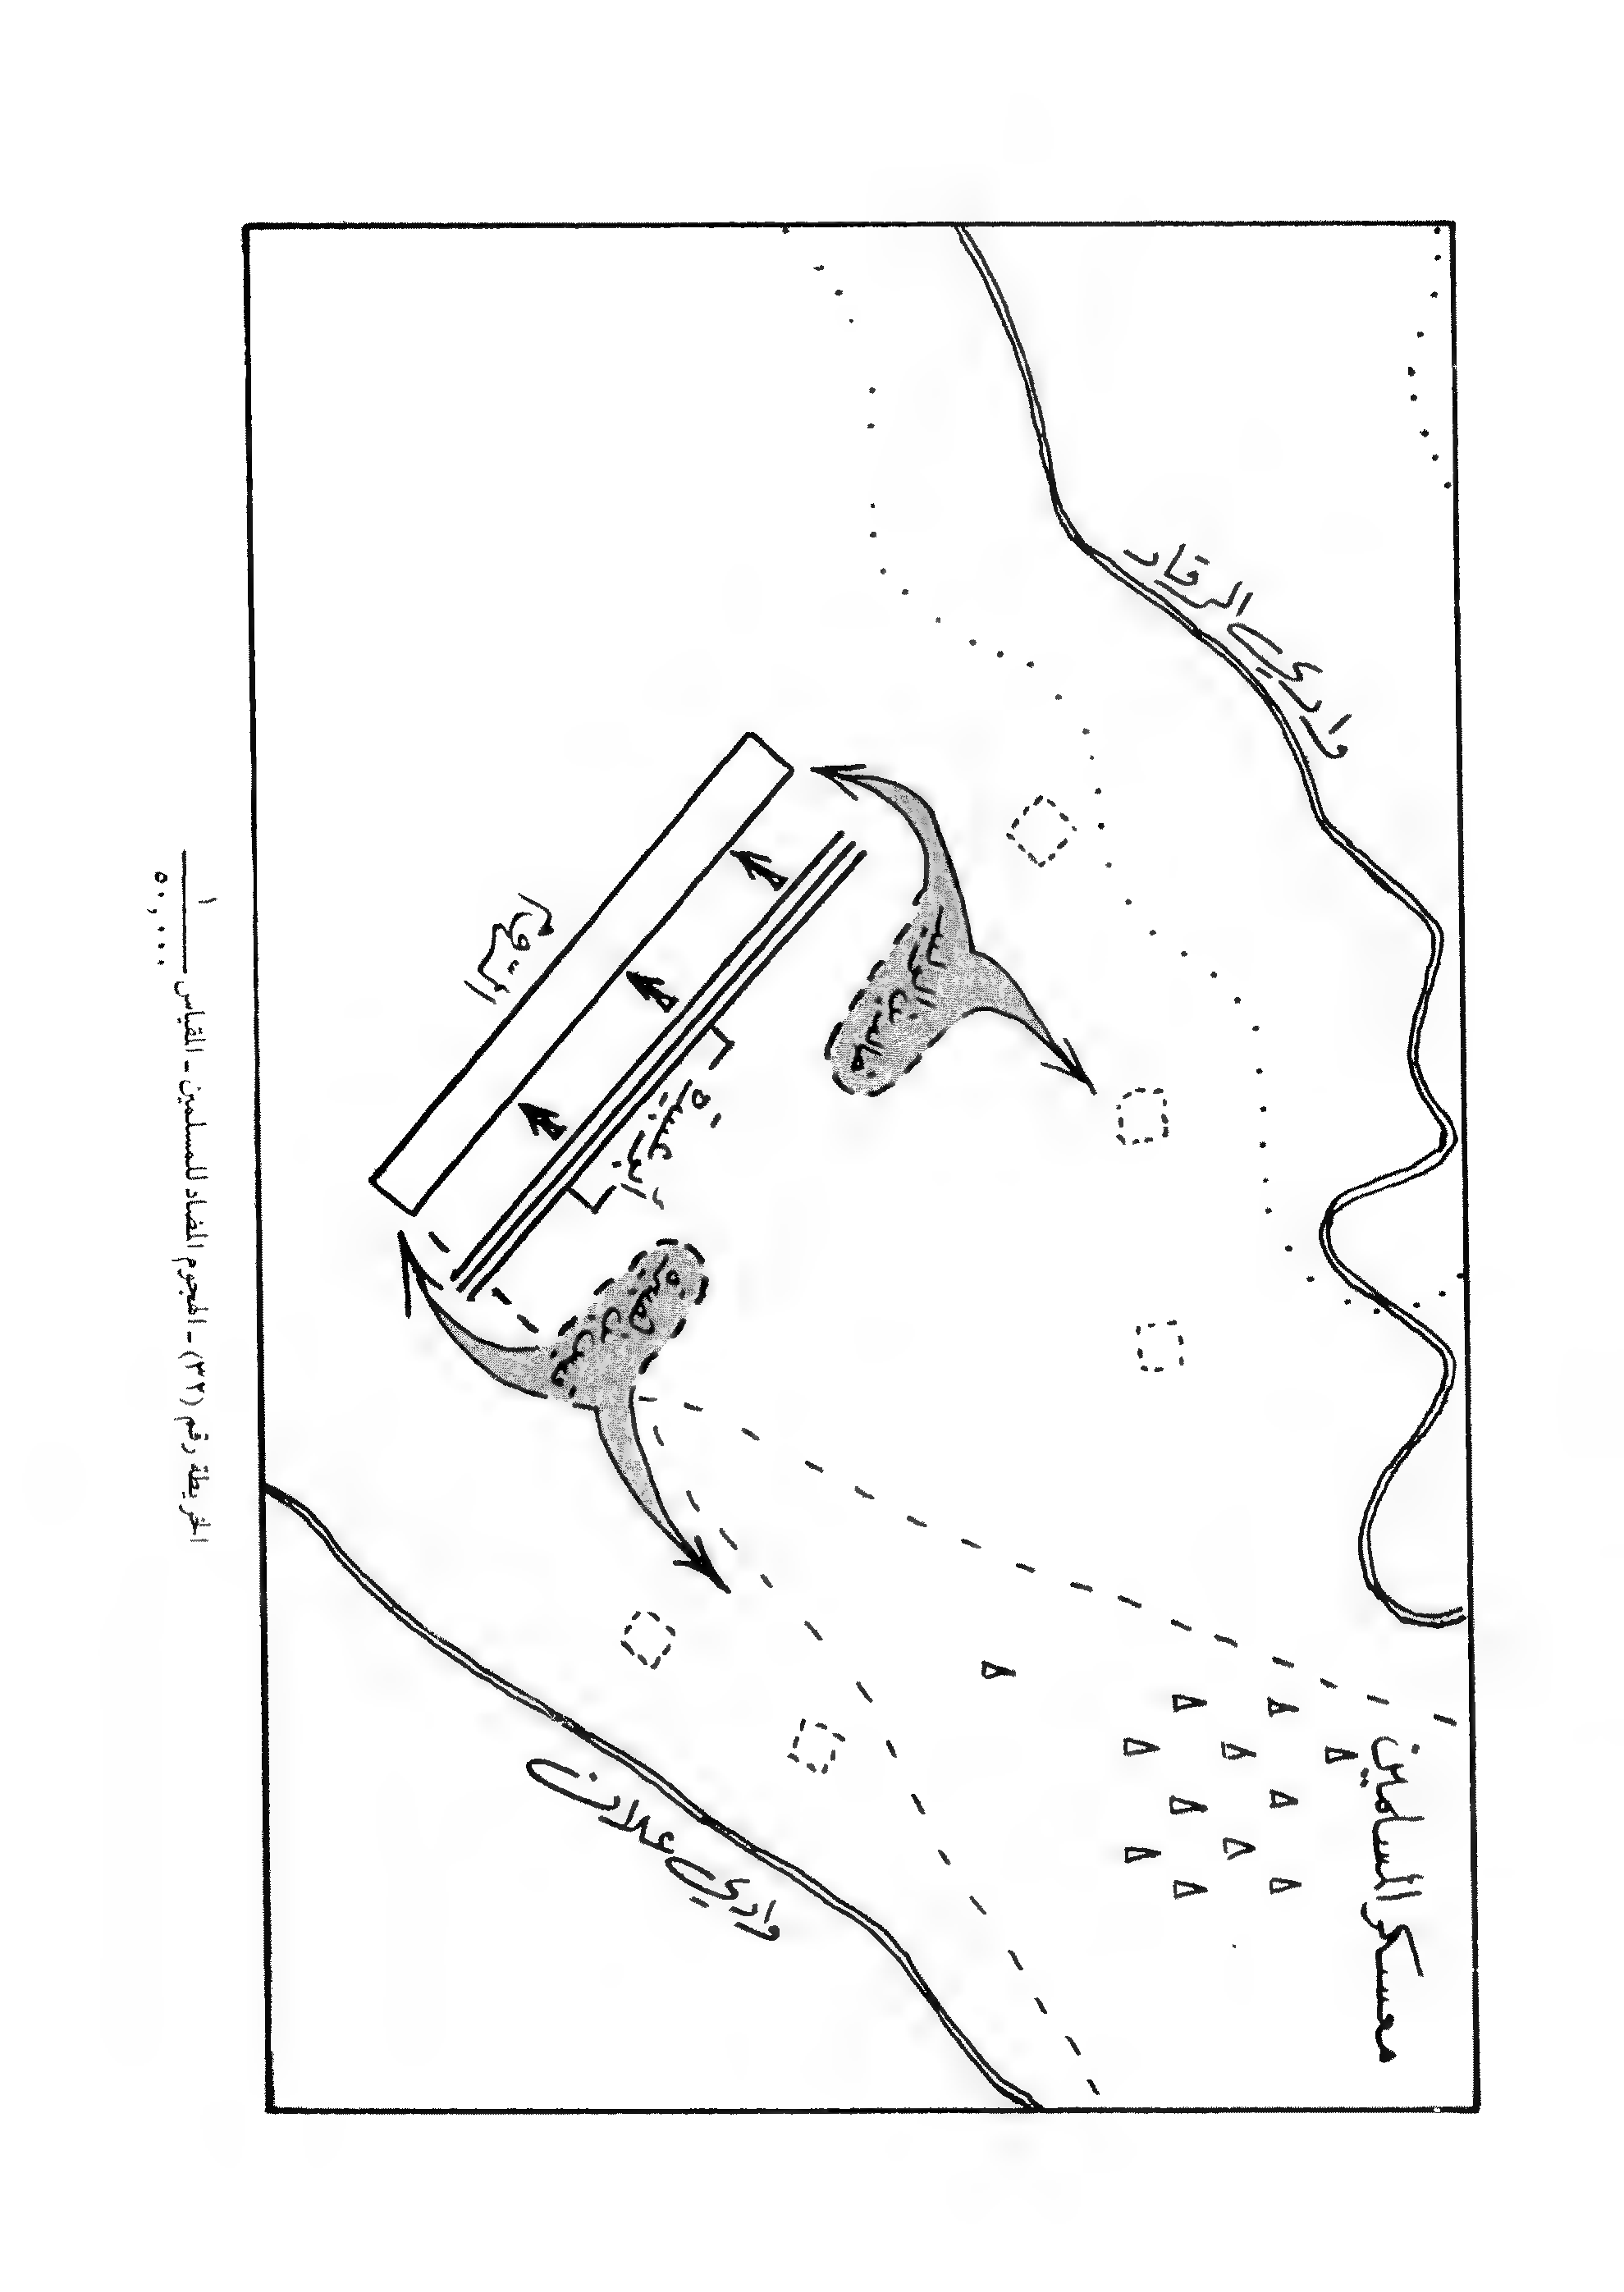 معسكر المسلمين
وادي الرقاد
خالد بن الوليد
أبو عبيدة
قيس بن هبيرة
وادي علان
الخريطة رقم (٣٢) - الهجوم المضاد للمسلمين - المقياس ١
٥٠,٠٠٠